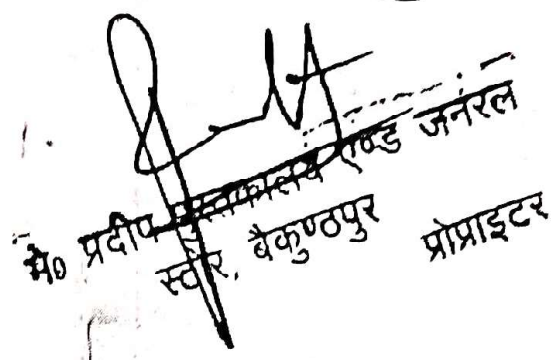 मे० प्रदीप पुस्तकालय एण्ड जनरल
स्टोर, बैकुण्ठपुर
प्रोप्राइटर